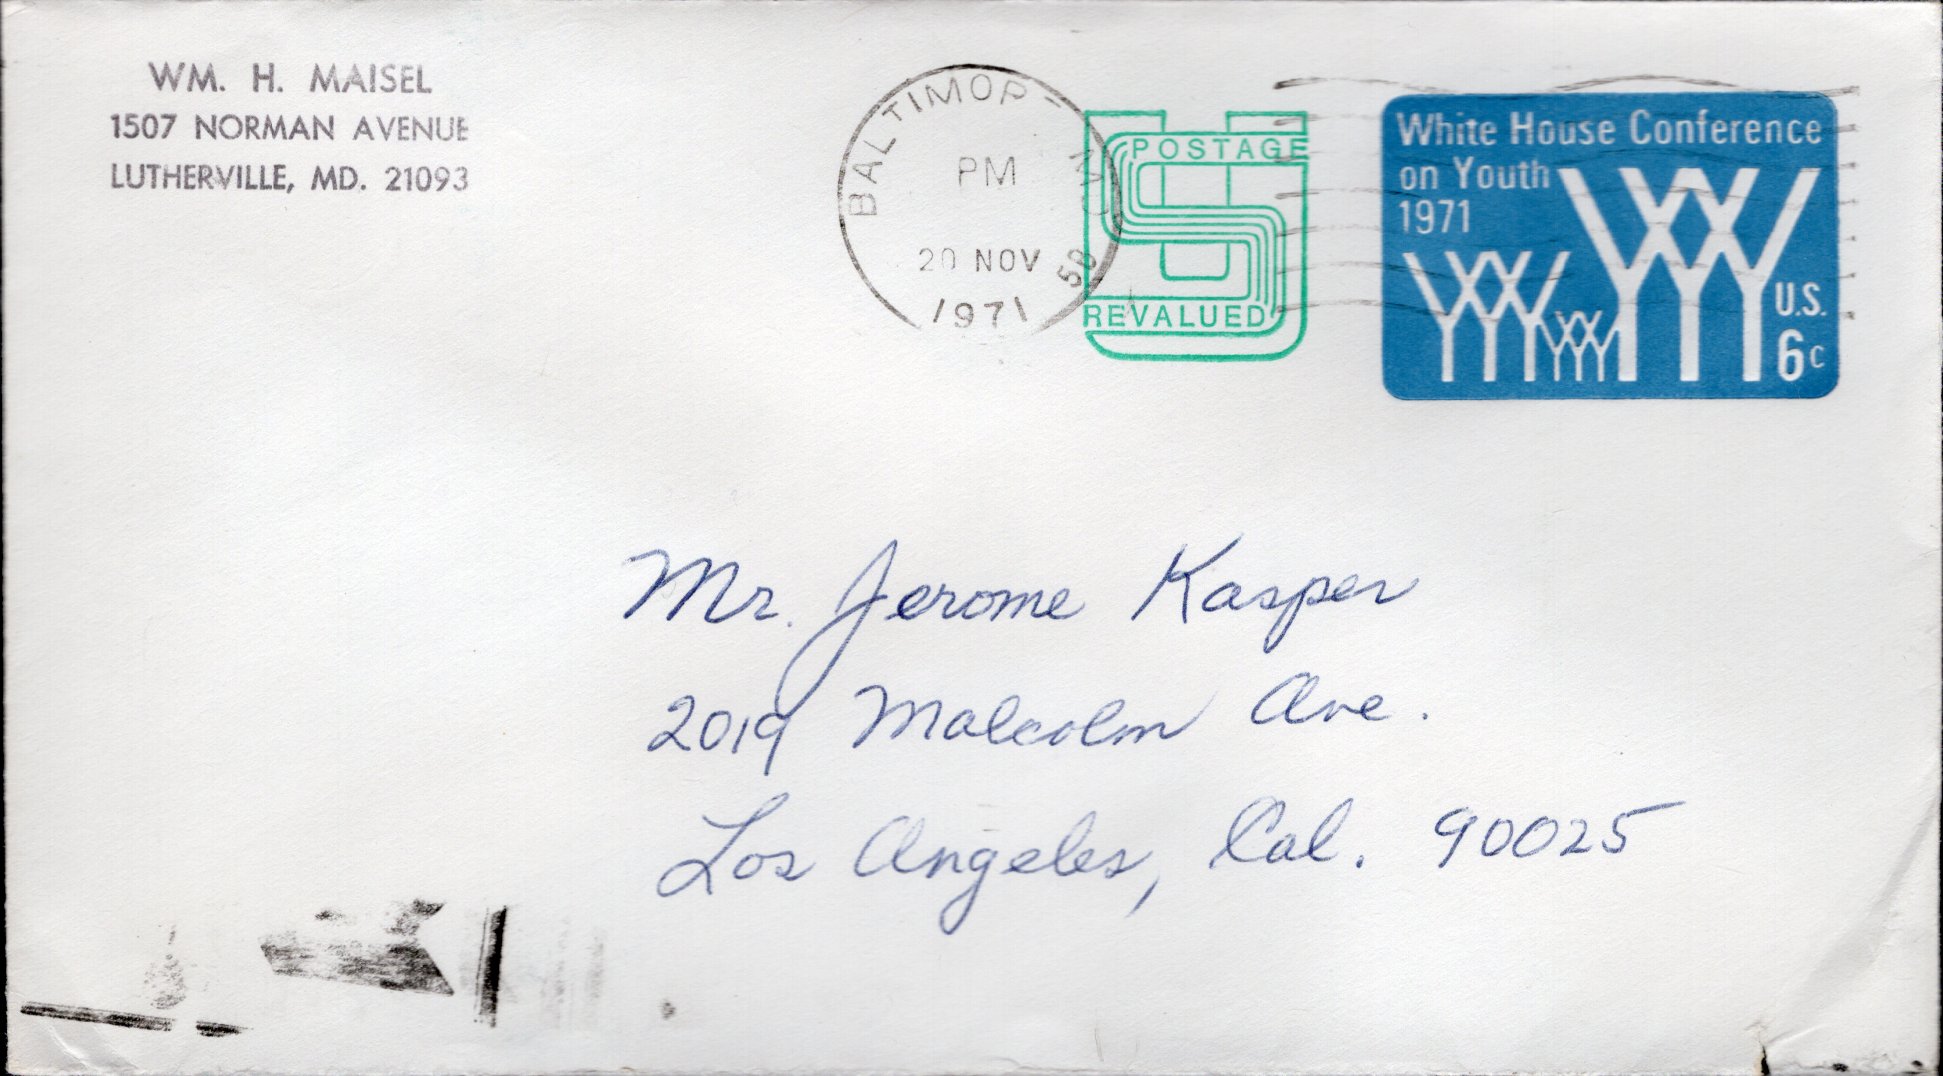 WM. H. MAISEL
1507 NORMAN AVENUE
LUTHERVILLE, MD. 21093
BALTIMOR MD
PM
20 NOV
1971
POSTAGE
REVALUED
White House Conference
on Youth
1971
U.S.
6c
Mr. Jerome Kasper
2019 Malcolm Ave.
Los Angeles, Cal. 90025